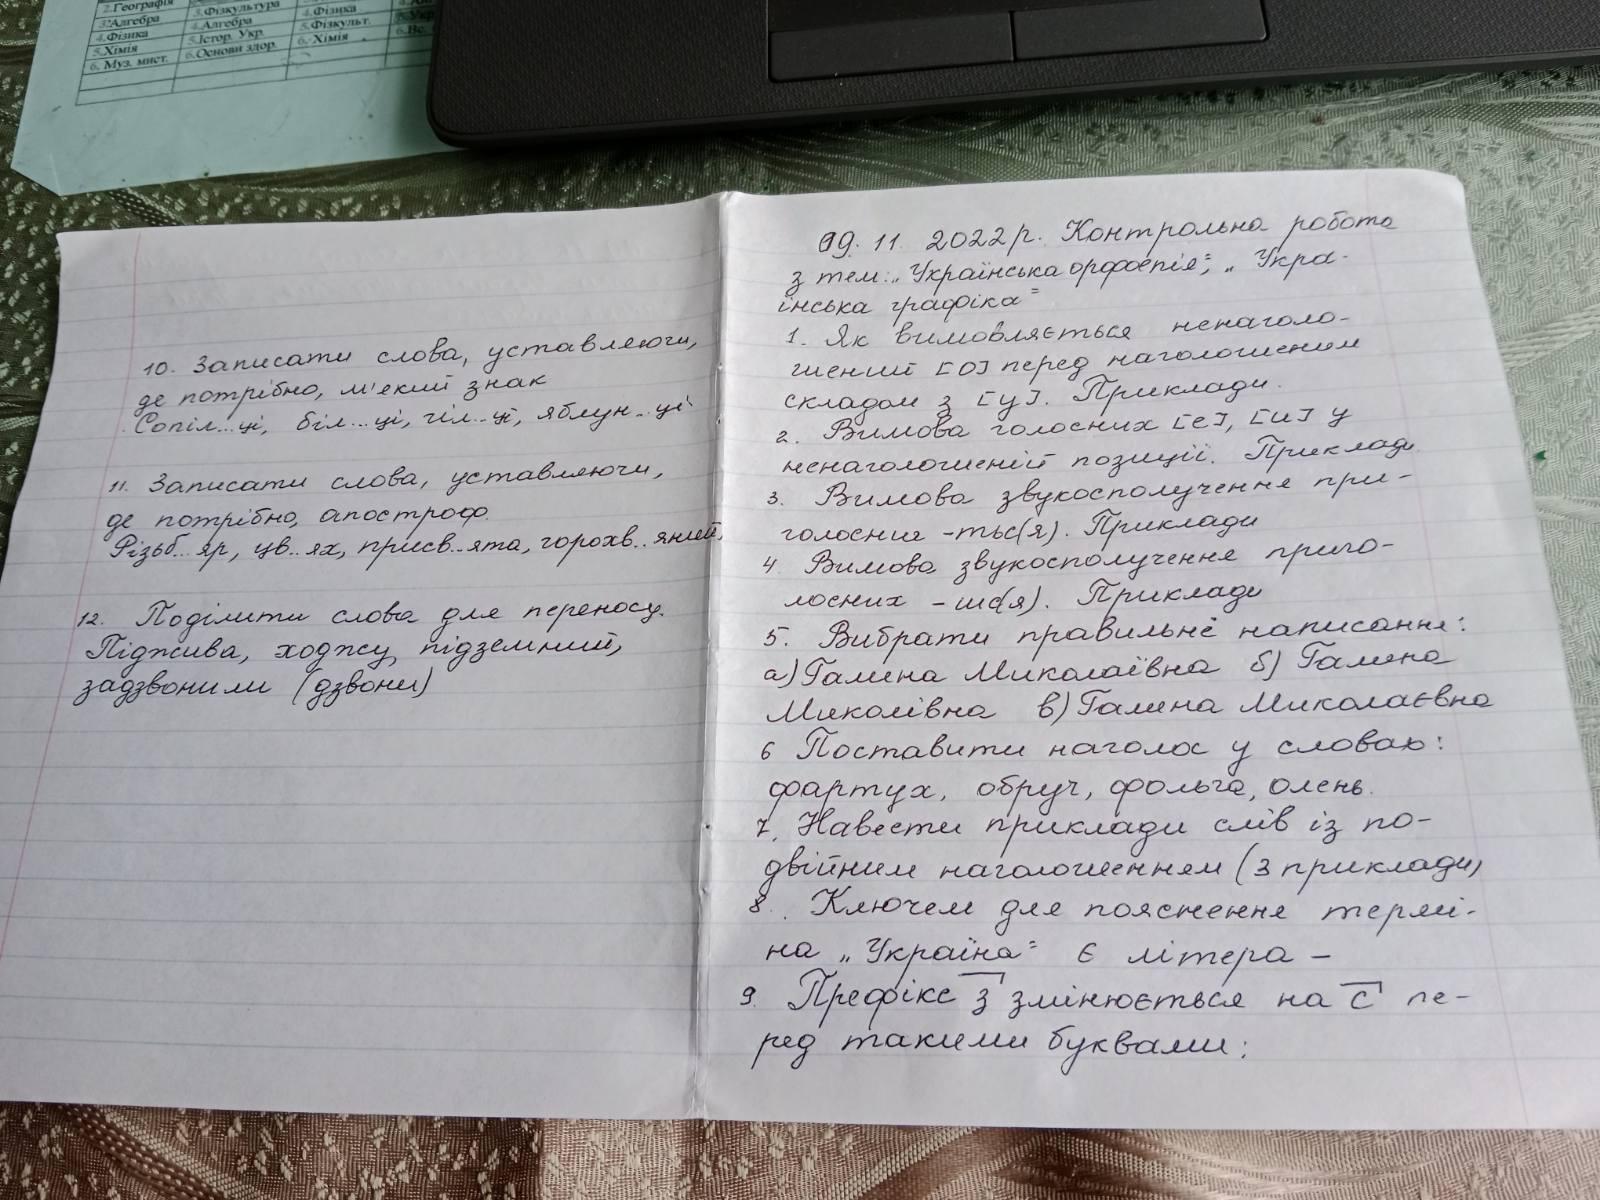 2.Географія
3.Алгебра
4.Фізика
5.Хімія
6. Муз. мист.
3.Фізкультура
4.Алгебра
5.Істор. Укр.
6.Основи здор.
4.Фізика
5.Фізкульт.
6. Хімія
10. Записати слова, уставляючи,
де потрібно, м'який знак
Сопіл...ці, біл...ці, гіл...ці, яблун...ці
11. Записати слова, уставляючи,
де потрібно, апостроф.
Різьб...яр, цв..ях, присв..ята, горохв..яний,
12. Поділити слова для переносу.
Піджива, ходжу, підземний,
задзвонили (дзвони)
09. 11. 2022р. Контрольна робота
з тем: „Українська орфоепія", „Укра-
їнська графіка"
1. Як вимовляється ненаголо-
шений [о] перед наголошеним
складом з [у]. Приклади.
2. Вимова голосних [е], [и] у
ненаголошеній позиції. Приклади
3. Вимова звукосполучення при-
голосних -ться(я). Приклади
4. Вимова звукосполучення приго-
лосних -шс(я). Приклади
5. Вибрати правильне написання:
а) Галина Миколаївна б) Галина
Миколівна в) Галина Миколаєвна
6 Поставити наголос у словах:
фартух, обруч, фольга, олень.
7. Навести приклади слів із по-
двійним наголошенням (3 приклади)
8. Ключем для пояснення термі-
на „Україна" є літера –
9. Префікс з змінюється на с пе-
ред такими буквами: